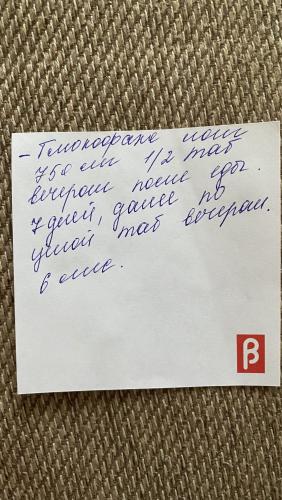 - Глюкофаж лонг
750 мг 1/2 таб
вечером после еды.
7 дней, далее по
целой таб вечером.
6 мес.
β